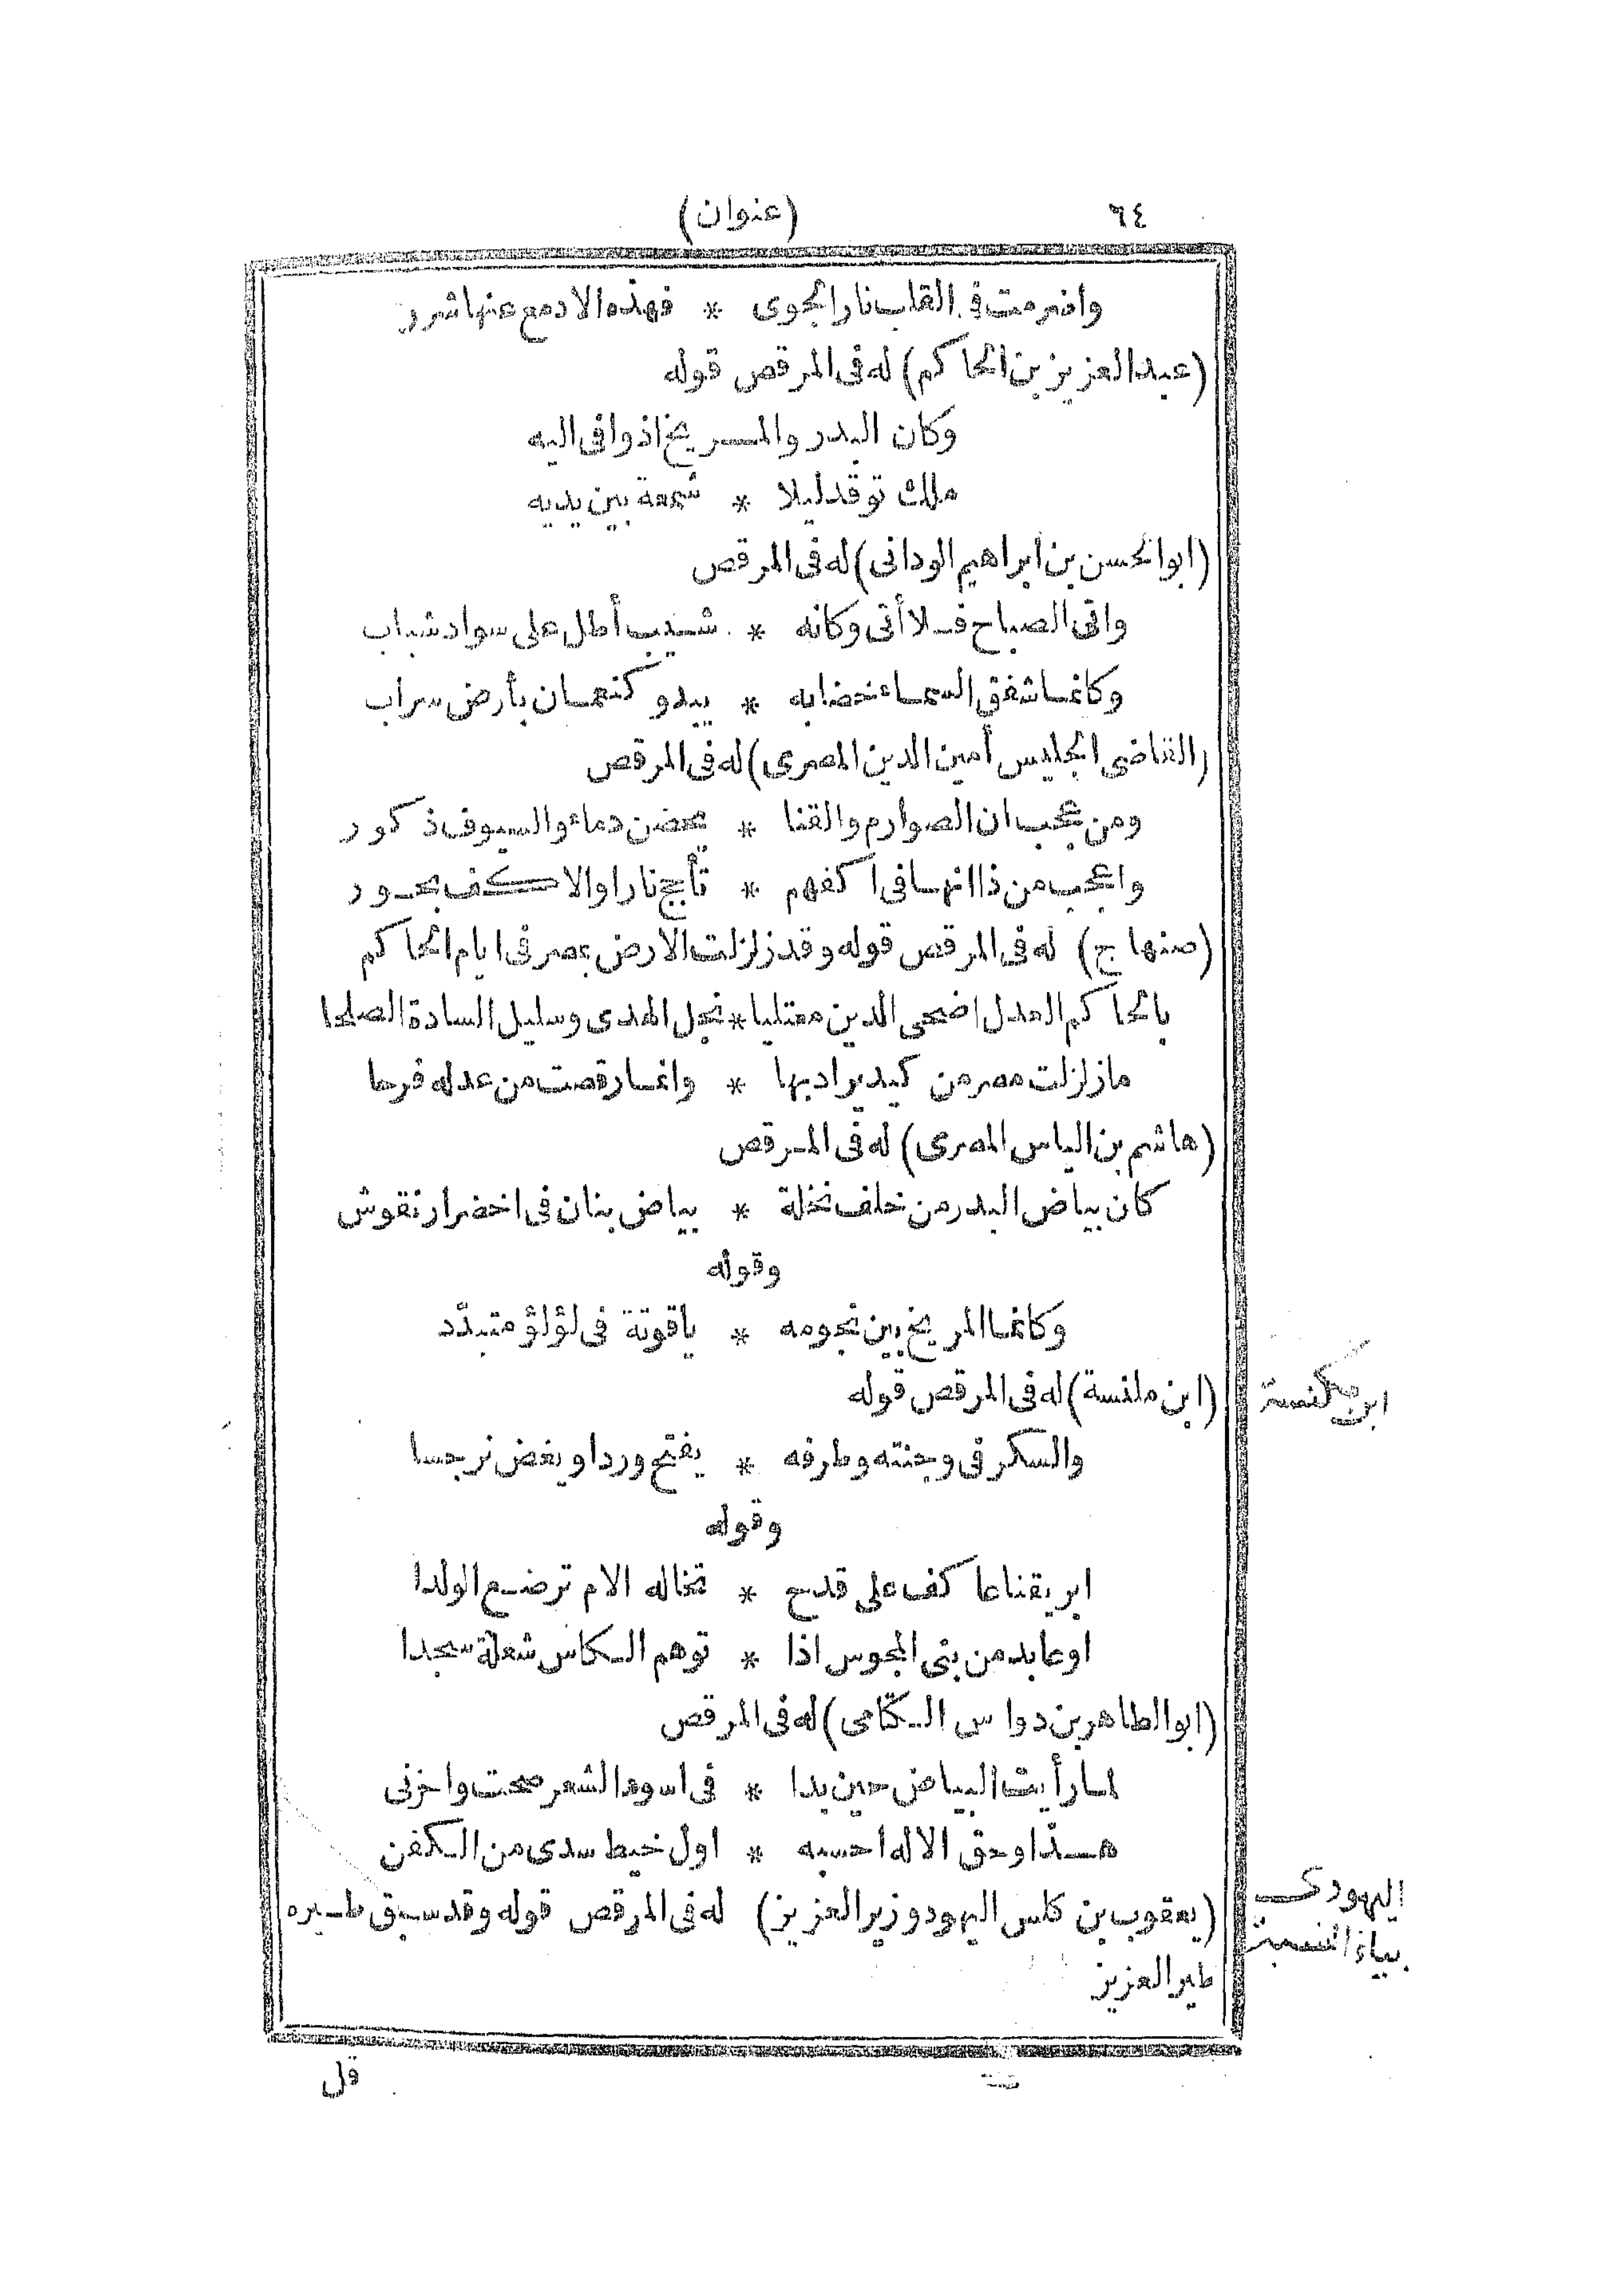 ٦٤ (عنوان)
واضرمت فى القلب نار الجوى * فهذه الادمع عنها شرر
(عبد العزيز بن الحاكم) له فى المرقص قوله
وكان البدر والمريخ اذ وافى اليه
ملك توقد ليلا * شمعة بين يديه
(ابو الحسن بن ابراهيم الودانى) له فى المرقص
وافى الصباح فلا أتى وكانه * شيب أطل على سواد شباب
وكانما شفق السماء خضابه * يبدو كنعمان بأرض سراب
(القاضى الجليس أمين الدين المصرى) له فى المرقص
ومن عجب ان الصوارم والقنا * تحضن دماء والسيوف ذكور
واعجب من ذا انها فى اكفهم * تأجج نارا والاكف بحور
(صنهاج) له فى المرقص قوله وقد زلزلت الارض بمصر فى ايام الحاكم
بالحاكم العدل اضحى الدين معتليا * نجل الهدى وسليل السادة الصلحا
ما زلزلت مصر من كيد يراد بها * وانما رقصت من عدله فرحا
(هاشم بن الياس المصرى) له فى المرقص
كان بياض البدر من خلف نخلة * بياض بنان فى اخضرار نقوش
وقوله
وكانما المريخ بين نجومه * ياقوتة فى لؤلؤ متبدّد
(ابن ملنسة) له فى المرقص قوله
ابن مكنسة
والسكر فى وجنته وطرفه * يفتح وردا ويغض نرجسا
وقوله
ابريقنا عا كف على قدح * تخاله الام ترضع الولدا
او عابد من بنى المجوس اذا * توهم الكاس شعلة سجدا
(ابو الطاهر بن دواس الكتامى) له فى المرقص
لما رأيت البياض حين بدا * فى اسود الشعر صحت واحزنى
هذا وحق الاله احسبه * اول خيط سدى من الكفن
(يعقوب بن كلس اليهود وزير العزيز) له فى المرقص قوله وقد سبق طيره
اليهودى
بياء النسبة
طير العزيز
قل